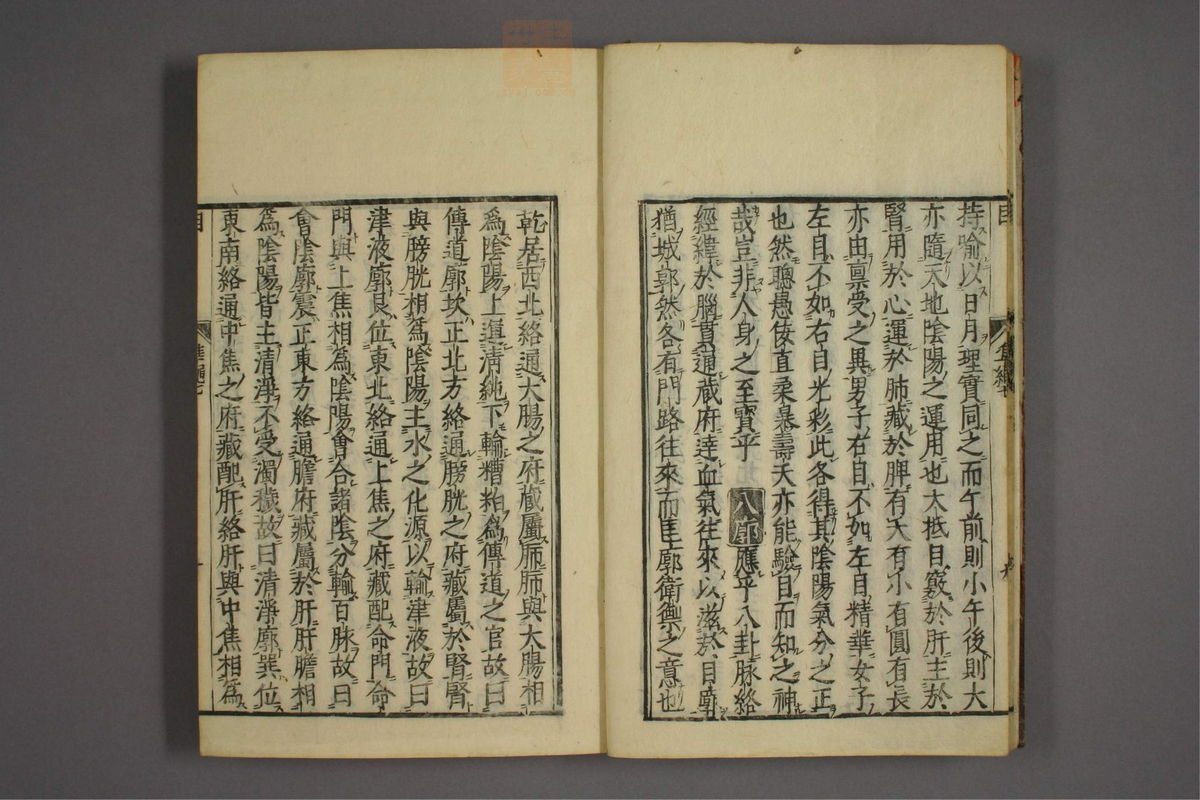 持喻以日月理實同之而午前則小午後則大
亦隨天地陰陽之運用也大抵目竅於肝主於
腎用於心運於肺藏於脾有大有小有圓有長
亦由稟受之異男子右目不如左目精華女子
左目不如右目光彩此各得其陰陽氣分之正
也然聰愚佞直柔暴壽夭亦能驗目而知之神
哉豈非人身之至寶乎 八廓應乎八卦脉絡
經緯於腦貫通藏府達血氣往來以滋於目廓
猶城郭然各有門路往來而匡廓衛禦之意也
乾居西北絡通大腸之府藏屬肺肺與大腸相
為陰陽上運清純下輸糟粕為傳道之官故曰
傳道廓坎正北方絡通膀胱之府藏屬於腎腎
與膀胱相為陰陽主水之化源以輸津液故曰
津液廓艮位東北絡通上焦之府藏配命門命
門與上焦相為陰陽會合諸陰分輸百脉故曰
會陰廓震正東方絡通膽府藏屬於肝肝膽相
為陰陽皆主清淨不受濁穢故曰清淨廓巽位
東南絡通中焦之府藏配肝絡肝與中焦相為